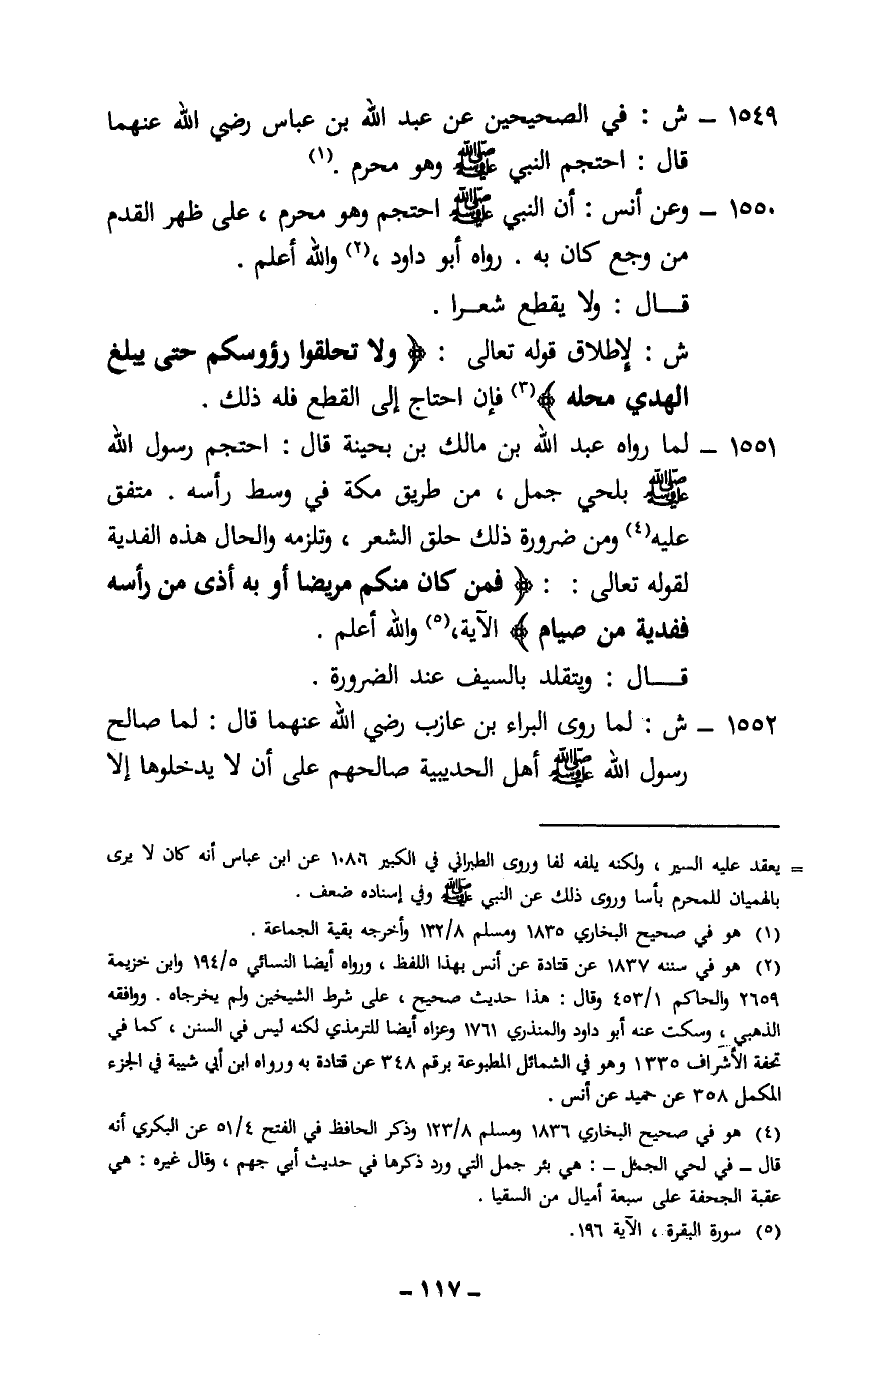 ١٥٤٩ ــ ش : في الصحيحين عن عبد الله بن عباس رضي الله عنهما
قال : احتجم النبي ﷺ وهو محرم .(١)
١٥٥٠ ــ وعن أنس : أن النبي ﷺ احتجم وهو محرم ، على ظهر القدم
من وجع كان به . رواه أبو داود ،(٢) والله أعلم .
قـــال : ولا يقطع شعـــرا .
ش : لإطلاق قوله تعالى : ﴿ ولا تحلقوا رؤوسكم حتى يبلغ
الهدي محله ﴾(٣) فإن احتاج إلى القطع فله ذلك .
١٥٥١ ــ لما رواه عبد الله بن مالك بن بحينة قال : احتجم رسول الله
ﷺ بلحي جمل ، من طريق مكة في وسط رأسه . متفق
عليه(٤) ومن ضرورة ذلك حلق الشعر ، وتلزمه والحال هذه الفدية
لقوله تعالى : : ﴿ فمن كان منكم مريضا أو به أذى من رأسه
ففدية من صيام ﴾ الآية،(٥) والله أعلم .
قـــال : ويتقلد بالسيف عند الضرورة .
١٥٥٢ ــ ش : لما روى البراء بن عازب رضي الله عنهما قال : لما صالح
رسول الله ﷺ أهل الحديبية صالحهم على أن لا يدخلوها إلا
= يعقد عليه السير ، ولكنه يلفه لفا وروى الطبراني في الكبير ١٠٨٠٦ عن ابن عباس أنه كان لا يرى
بالهميان للمحرم بأسا وروى ذلك عن النبي ﷺ وفي إسناده ضعف .
(١) هو في صحيح البخاري ١٨٣٥ ومسلم ١٢٢/٨ وأخرجه بقية الجماعة .
(٢) هو في سننه ١٨٣٧ عن قتادة عن أنس بهذا اللفظ ، ورواه أيضا النسائي ١٩٤/٥ وابن خزيمة
٢٦٥٩ والحاكم ٤٥٣/١ وقال : هذا حديث صحيح ، على شرط الشيخين ولم يخرجاه . ووافقه
الذهبي ، وسكت عنه أبو داود والمنذري ١٧٦١ وعزاه أيضا للترمذي لكنه ليس في السنن ، كما في
تحفة الأشراف ١٣٣٥ وهو في الشمائل المطبوعة برقم ٣٤٨ عن قتادة به ورواه ابن أبي شيبة في الجزء
المكمل ٣٥٨ عن حميد عن أنس .
(٤) هو في صحيح البخاري ١٨٣٦ ومسلم ١٢٣/٨ وذكر الحافظ في الفتح ٥١/٤ عن البكري أنه
قال ــ في لحي الجمل ــ : هي بئر جمل التي ورد ذكرها في حديث أبي جهم ، وقال غيره : هي
عقبة الجحفة على سبعة أميال من السقيا .
(٥) سورة البقرة ، الآية ١٩٦.
ــ ١١٧ ــ